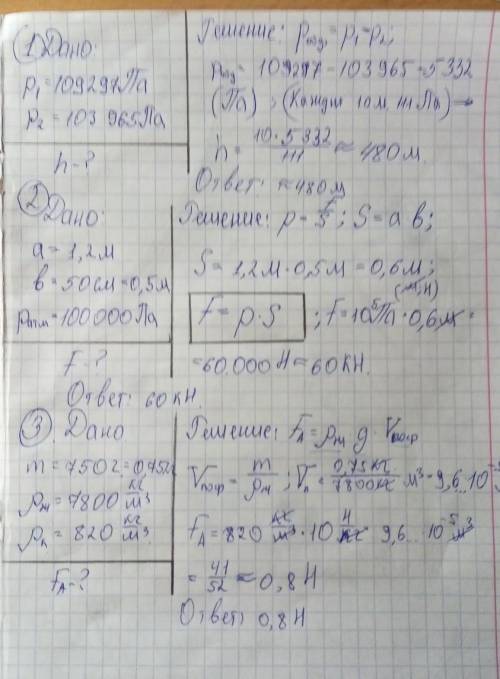 ① Дано:
p₁ = 109297 Па
p₂ = 103 965 Па
h - ?
Решение: p = p₁ = p₂;
p = 109297 - 103 965 = 5332
(Па); (Каждые 10 м 111 Па) →
h = 10 · 5332 / 111 ≈ 480 м.
Ответ: ≈ 480 м
② Дано:
a = 1,2 м
в = 50 см = 0,5 м
pатм = 100000 Па
F - ?
Решение: p = F/S; S = a в;
S = 1,2 м · 0,5 м = 0,6 м;
F = p · S ; F = 10⁵ Па · 0,6 м =
= 60.000 Н = 60 КН.
Ответ: 60 кН.
③ Дано
m = 750 г = 0,75
ρт = 7800 кг/м³
ρл = 820 кг/м³
FА - ?
Решение: FА = ρж g · Vпогр
Vпогр = m/ρт ; Vп = 0,75 кг / 7800 кг м³ = 9,6 · 10⁻⁵
FА = 820 кг/м³ · 10 Н/кг 9,6 · 10⁻⁵ м³
= 41/52 ≈ 0,8 Н
Ответ: 0,8 Н